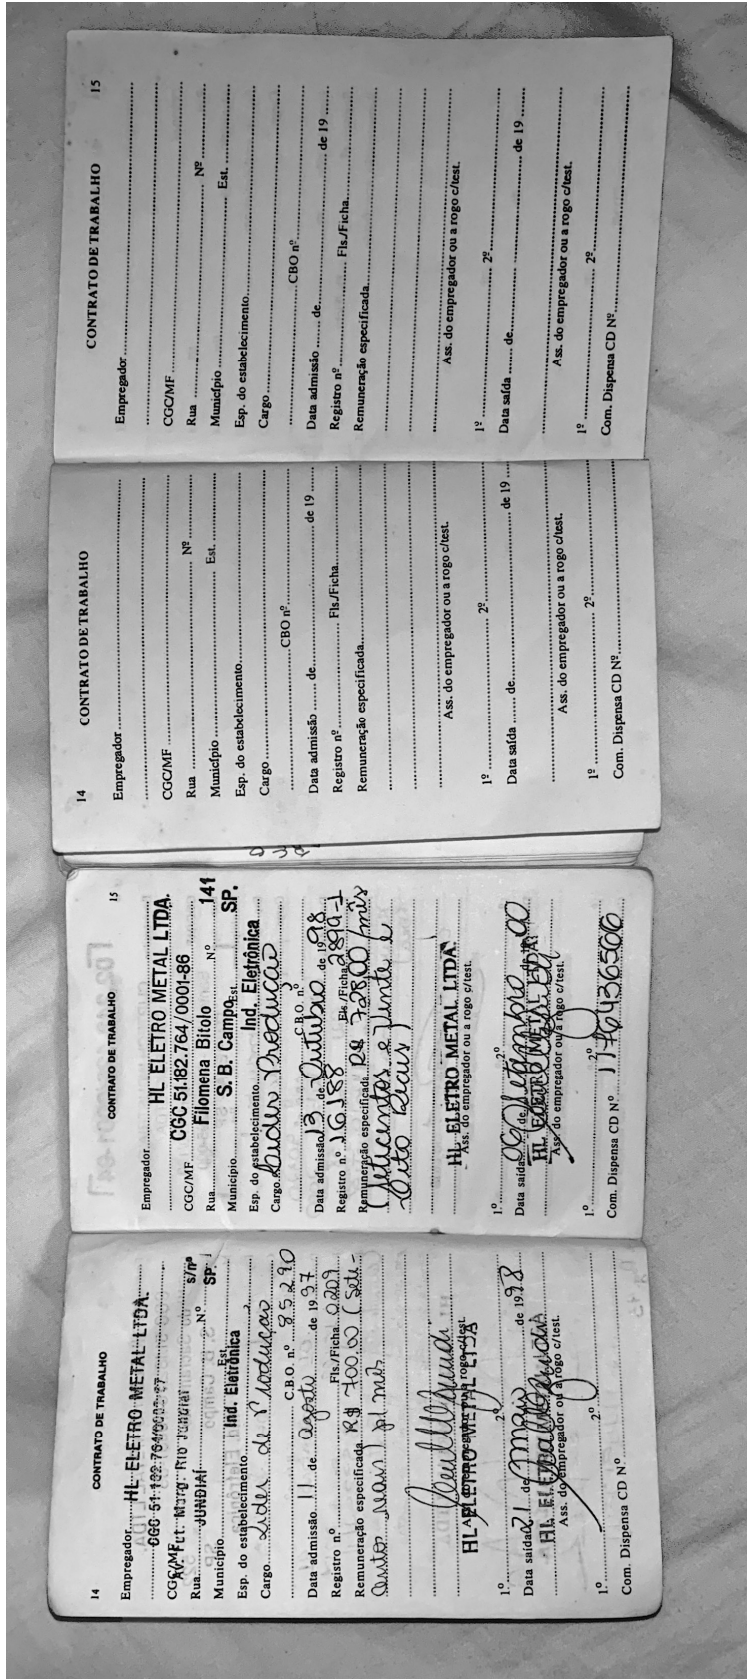 14
CONTRATO DE TRABALHO
Empregador HL ELETRO METAL LTDA.
CGC 51.182.764/0002-67
CGC/MF Av. Ect. Marg. Rio Jundiaí s/nº
Rua JUNDIAÍ Nº SP.
Município Est.
Esp. do estabelecimento Ind. Eletrônica
Cargo Lider de Produção
C.B.O. nº 85290
Data admissão 11 de agosto de 1997
Registro nº Fls./Ficha 0209
Remuneração especificada R$ 700,00 (Sete-
centos reais) p/ mês
HL ELETRO METAL LTDA
Ass. do empregador ou a rogo c/test.
1.º 2.º
Data saída 21 de maio de 1998
HL ELETRO METAL LTDA
Ass. do empregador ou a rogo c/test.
1.º 2.º
Com. Dispensa CD Nº
15
CONTRATO DE TRABALHO
Empregador HL ELETRO METAL LTDA.
CGC/MF CGC 51.182.764/0001-86
Rua Filomena Bitolo N.º 141
Município S. B. Campo Est. SP.
Esp. do estabelecimento Ind. Eletrônica
Cargo Lider Produção
C.B.O. nº
Data admissão 13 de Outubro de 1998
Registro nº 16188 Fls./Ficha 2899-1
Remuneração especificada R$ 728,00/mês
(Setecentos e Vinte e
Oito Reais)
HL ELETRO METAL LTDA
Ass. do empregador ou a rogo c/test.
1.º 2.º
Data saída 06 de Setembro de 00
HL ELETRO METAL LTDA
Ass. do empregador ou a rogo c/test.
1.º 2.º
Com. Dispensa CD Nº 1176436506
14
CONTRATO DE TRABALHO
Empregador
CGC/MF
Rua Nº
Município Est.
Esp. do estabelecimento
Cargo
CBO nº
Data admissão de de 19
Registro nº Fls/Ficha
Remuneração especificada
Ass. do empregador ou a rogo c/test.
1º 2º
Data saída de de 19
Ass. do empregador ou a rogo c/test.
1º 2º
Com. Dispensa CD Nº
CONTRATO DE TRABALHO 15
Empregador
CGC/MF
Rua Nº
Município Est.
Esp. do estabelecimento
Cargo
CBO nº
Data admissão de de 19
Registro nº Fls./Ficha
Remuneração especificada
Ass. do empregador ou a rogo c/test.
1º 2º
Data saída de de 19
Ass. do empregador ou a rogo c/test.
1º 2º
Com. Dispensa CD Nº